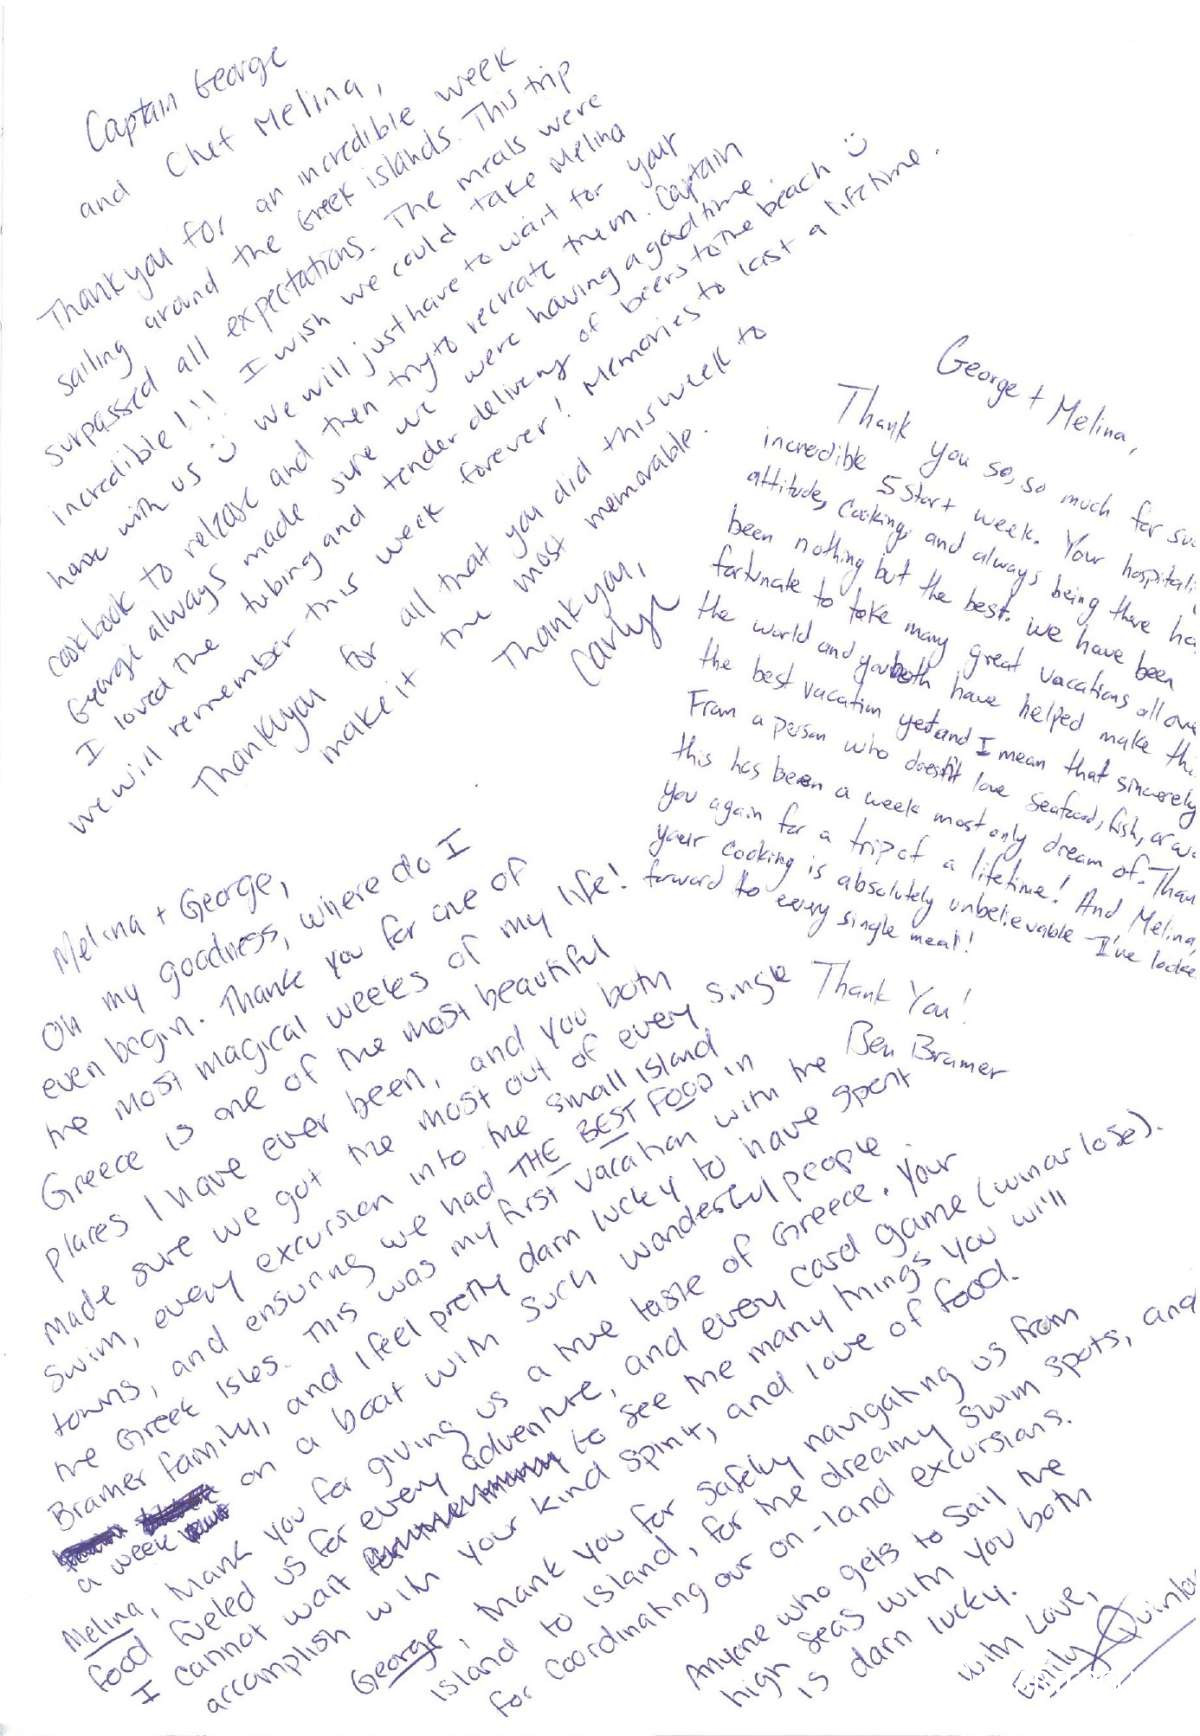 Captain George
and Chef Melina,
Thank you for an incredible week
sailing around the Greek islands. This trip
surpassed all expectations. The meals were
incredible!!! I wish we could take Melina
home with us :) We will just have to wait for your
cookbook to release and then try to recreate them. Captain
George always made sure we were having a good time.
I loved the tubing and tender delivery of beers to the beach :)
we will remember this week forever! Memories to last a lifetime.
Thank you for all that you did this week to
make it the most memorable.
Thank you,
Carlye
George + Melina,
Thank you so, so much for
incredible 5 Start week. Your
attitude, cooking, and always being there
been nothing but the best. We have been
fortunate to take many great vacations all
the world and you both have helped make
the best vacation yet and I mean that sincerely
From a person who doesn't love seafood, fish, or
this has been a week most only dream of.
you again for a trip of a lifetime! And Melina,
your cooking is absolutely unbelievable - I've
forward to every single meal!
Thank You!
Ben Bramer
Melina + George,
Oh my goodness, where do I
even begin. Thank you for one of
the most magical weeks of my life!
Greece is one of the most beautiful
places I have ever been, and you both
made sure we got the most out of every single
swim, every excursion into the small island
towns, and ensuring we had THE BEST FOOD in
the Greek Isles. This was my first vacation with the
Bramer family, and I feel pretty darn lucky to have spent
a week on a boat with such wonderful people
Melina, thank you for giving us a true taste of Greece. Your
food fueled us for every adventure, and every card game (win or lose).
I cannot wait to see the many things you will
accomplish with your kind spirit, and love of food.
George, thank you for safely navigating us from
island to island, for the dreamy swim spots, and
for coordinating our on-land excursions.
Anyone who gets to sail the
high seas with you both
is darn lucky.
With Love,
Emily